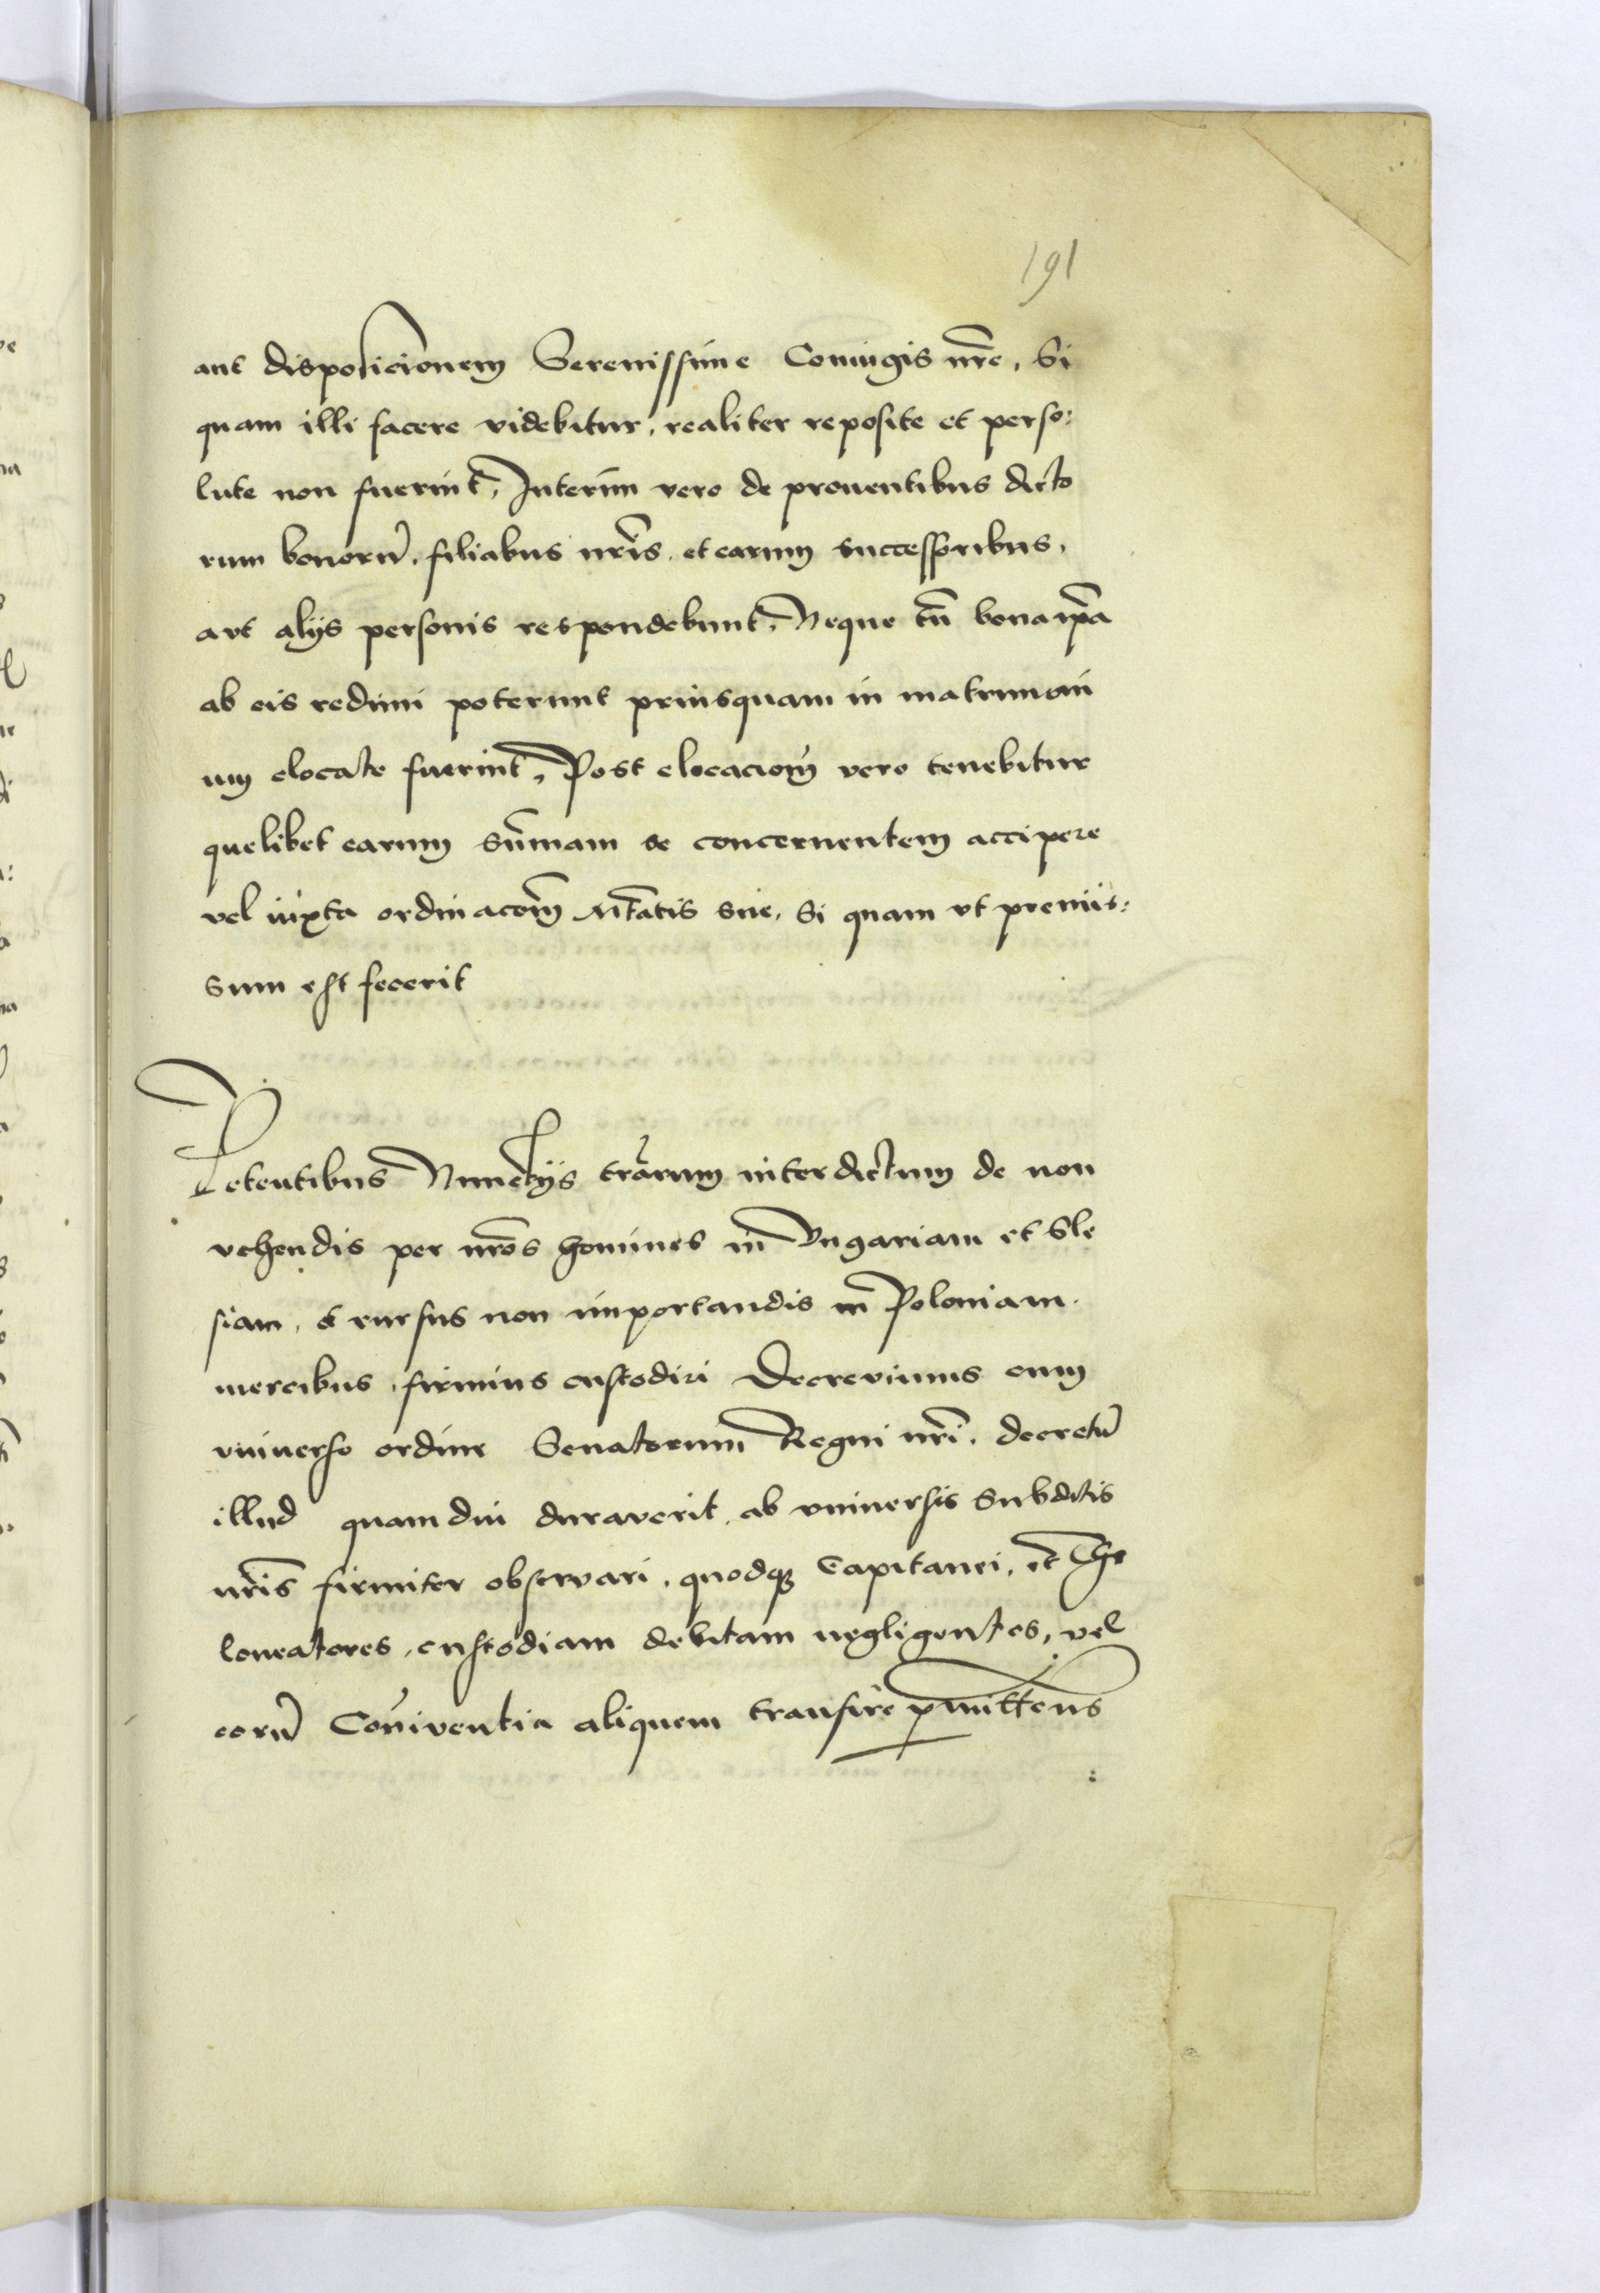 191
aut disposicionem Serenissime Coniugis nr̃e, Si
quam illi facere videbitur, realiter reposite et perso:
lute non fuerint, Interim vero de prouentibus dicto
rum bonorũ, filiabus nr̃is et earum successoribus,
aut alijs personis respondebunt, Neque tñ bona ip̃a
ab eis redimi poterunt priusquam in matrimoni
um elocate fuerint, Post elocaciom̃ vero tenebitur
quelibet earum sum̃am se concernentem accipere
vel iuxta ordinacom̃ Mt̃atis sue, Si quam vt premis:
sum est fecerit
Petentibus Nunctijs tr̃arum interdictum de non
vehendis per nr̃os homines in Vngariam et Sle
siam, et rursus non importandis in Poloniam
mercibus, firmius custodiri Decreuimus cum
vniuerso ordine Senatorum Regni nr̃i, decretũ
illud quamdiu duraverit, ab vniuersis Subditis
nr̃is firmiter observari, quodq; Capitanei, et The
loneatores, custodiam debitam negligentes, vel
eorũ Coñiventia aliquem transire p̱mittens